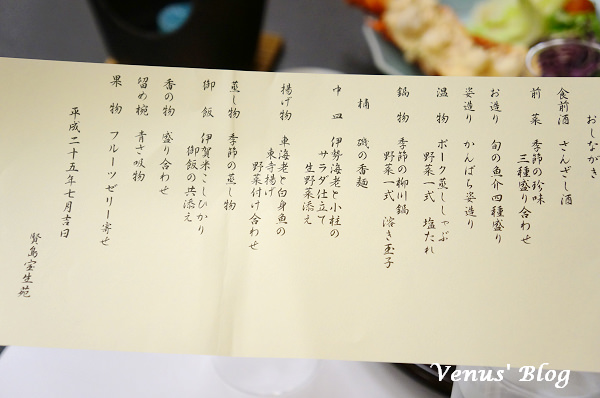 おしながき
食前酒 さんざし酒
前菜 季節の珍味
三種盛り合わせ
お造り 旬の魚介四種盛り
姿造り かんぱち姿造り
温物 ポーク蒸ししゃぶ
野菜一式 塩たれ
鍋物 季節の柳川鍋
野菜一式 溶き玉子
桶 磯の香麺
中皿 伊勢海老と小柱の
サラダ仕立て
生野菜添え
揚げ物 車海老と白身魚の
東寺揚げ
野菜付け合わせ
蒸し物 季節の蒸し物
御飯 伊賀米こしひかり
御飯の共添え
香の物 盛り合わせ
留め椀 青さ吸物
果物 フルーツゼリー寄せ
平成二十五年七月吉日
賢島宝生苑
Venus' Blog